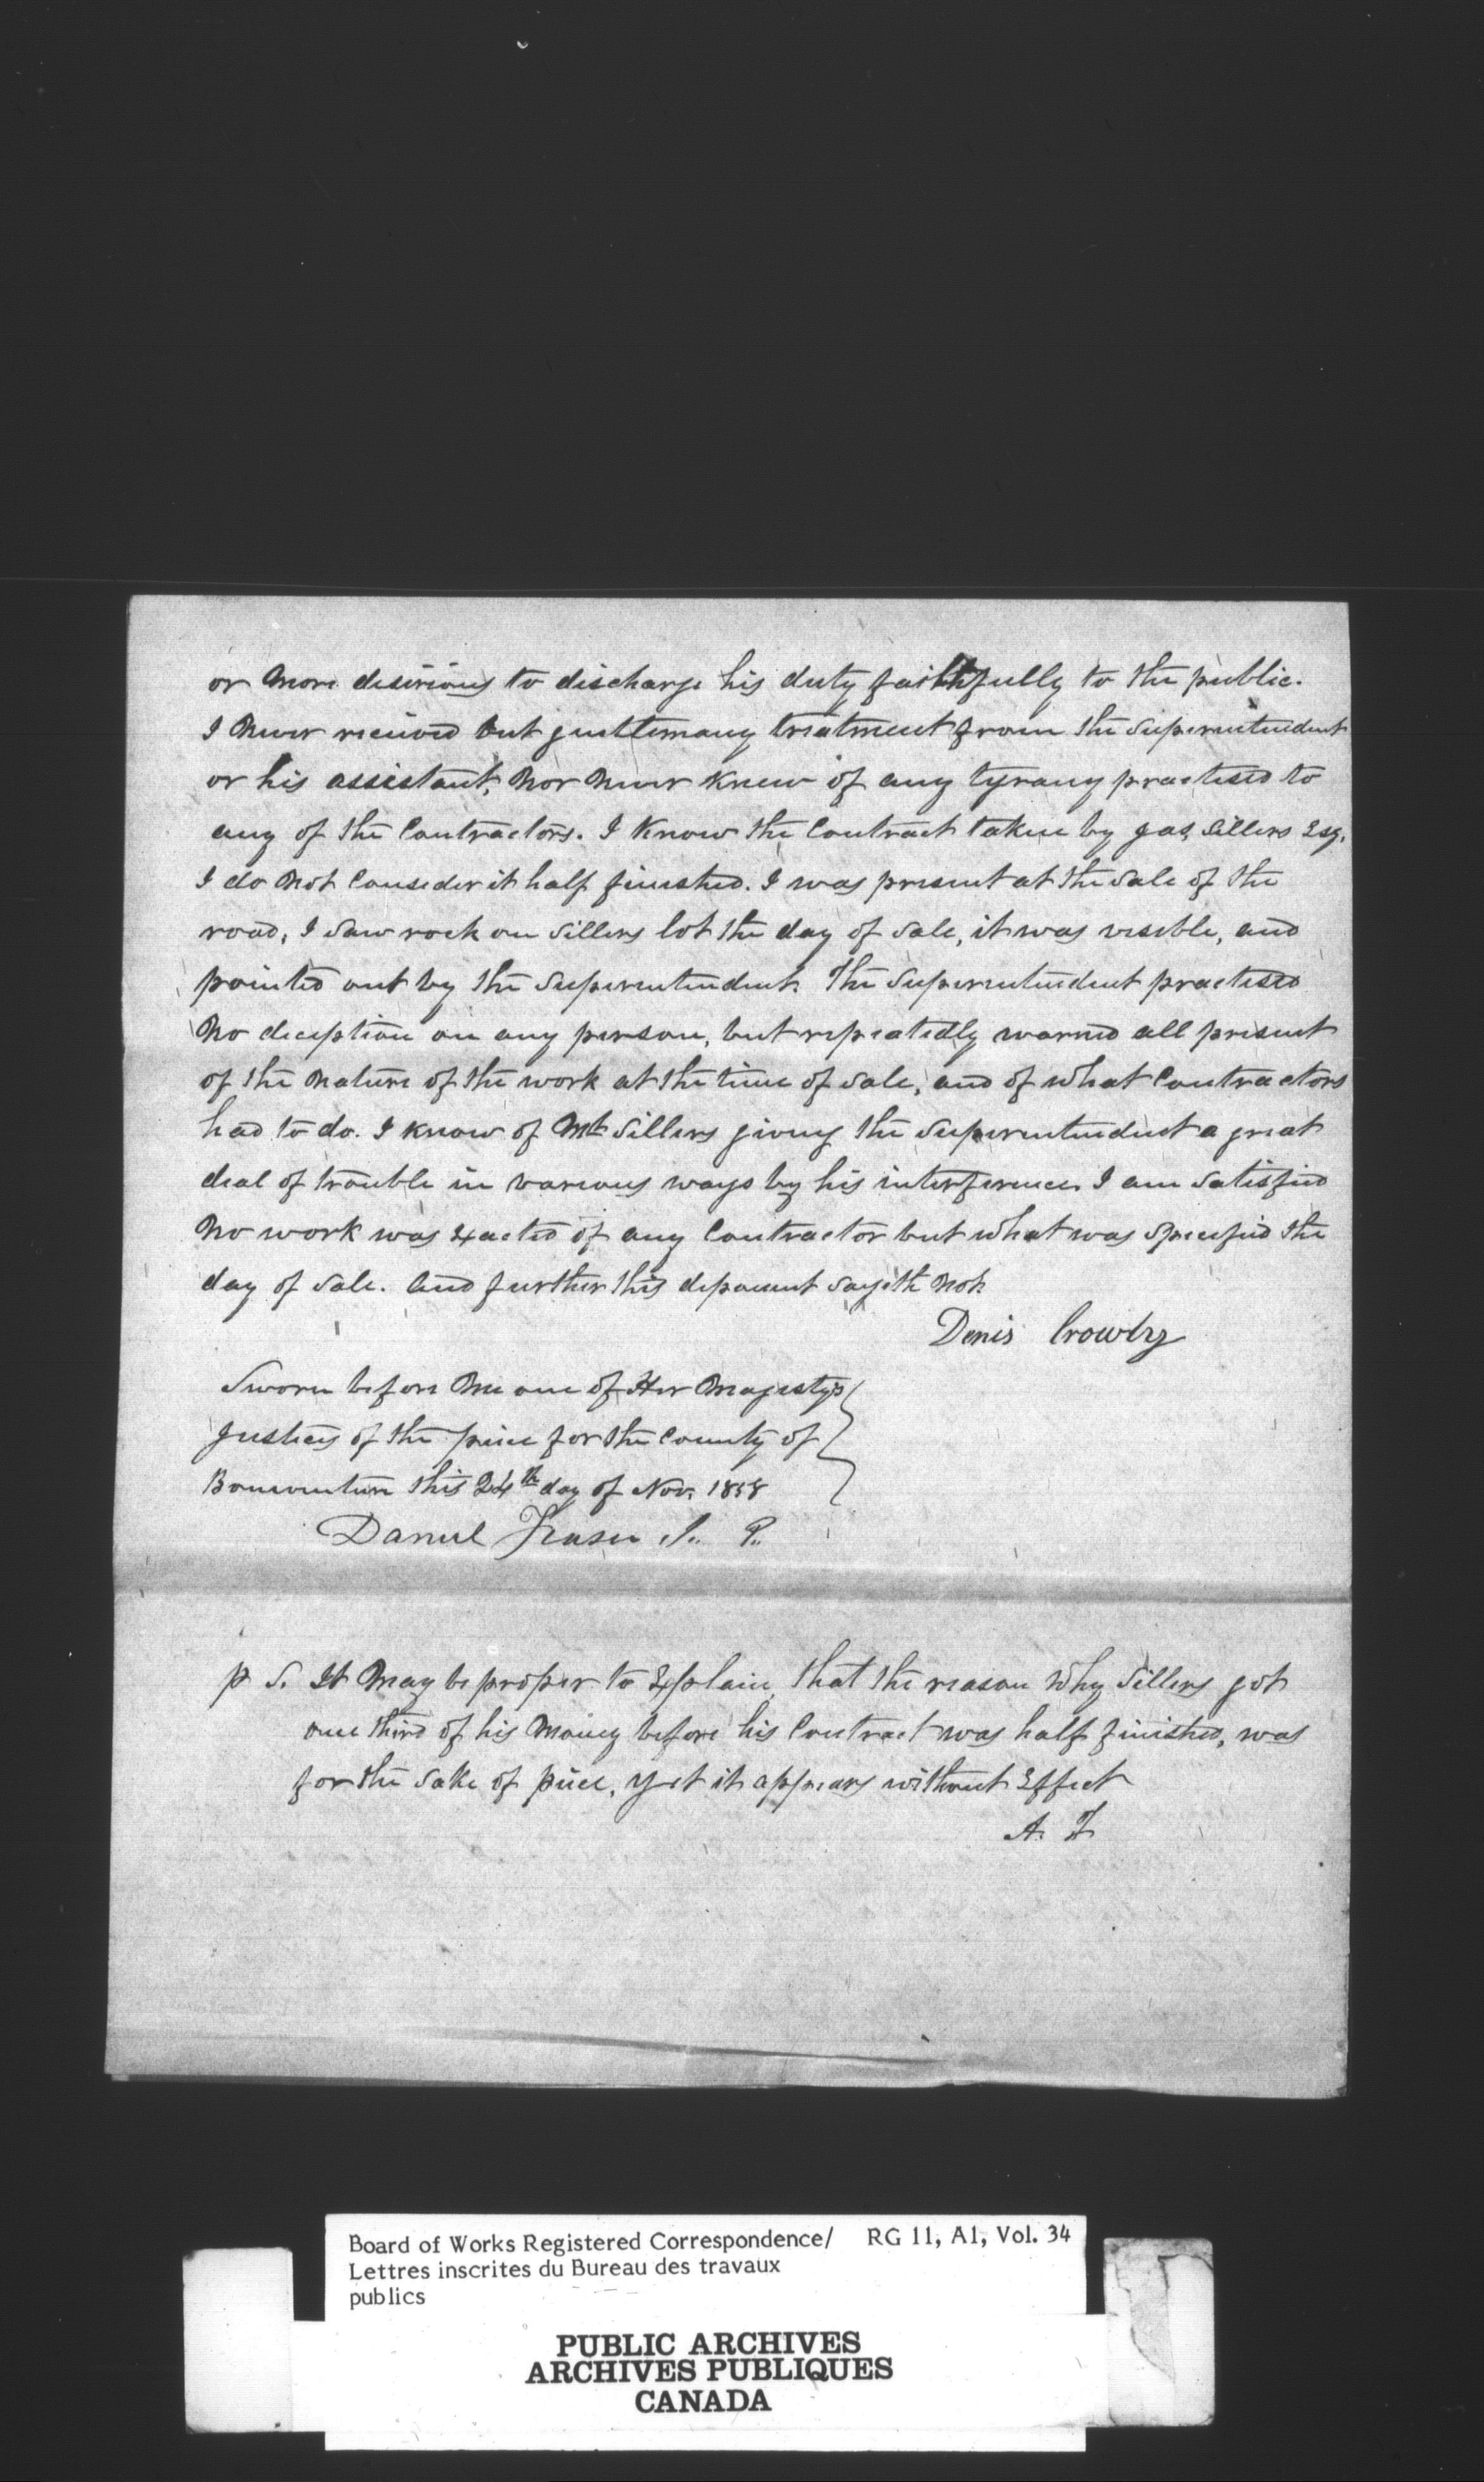 or more desirious to discharge his duty faithfully to the public.
I never received but genttemany treatment from the Superintendent
or his assistant, nor never knew of any tyrany practised to
any of the Contractors. I know the Contract taken by Jas Sillers Esq.
I do not Consider it half finished. I was present at the sale of the
road, I saw rock on Sillers lot the day of sale, it was visible, and
pointed out by the Superintendent. The Superintendent practised
no deception on any person, but repeatedly warned all present
of the nature of the work at the time of sale, and of what Contractors
had to do. I know of Mr Sillers giving the Superintendent a great
deal of trouble in various ways by his interference. I am satisfied
no work was exacted of any Contractor but what was specified the
day of sale. And further this deponent sayeth not.
Denis Crowley
Sworn before me one of Her Majestys
Justices of the piece for the County of
Bonaventure this 24th day of Nov. 1858
Daniel Fraser J. P.
P S. It may be proper to Explain, that the reason why Sillers got
one third of his money before his Contract was half finished, was
for the sake of piece, yet it appears without Effect
A. F
Board of Works Registered Correspondence/ RG 11, A1, Vol. 34
Lettres inscrites du Bureau des travaux
publics
PUBLIC ARCHIVES
ARCHIVES PUBLIQUES
CANADA